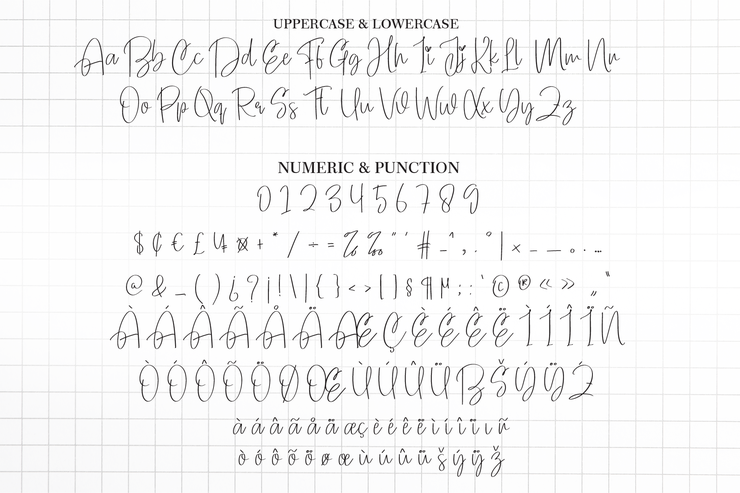 UPPERCASE & LOWERCASE
Aa Bb Cc Dd Ee Ff Gg Hh Ii Jj Kk Ll Mm Nn
Oo Pp Qq Rr Ss Tt Uu Vv Ww Xx Yy Zz
NUMERIC & PUNCTION
0 1 2 3 4 5 6 7 8 9
$ ¢ € £ ¥ ¤ + * / ÷ = % ‰ " ' # _ ^ , . ° | × – — o · …
@ & _ ( ) ¿ ? ¡ ! \ | { } < > [ ] § ¶ µ ; : ` © ® « » „ “
À Á Â Ã Å Ä Æ Ç È É Ê Ë Ì Í Î Ï Ñ
Ò Ó Ô Õ Ö Ø Œ Ù Ú Û Ü ß Š Ý Ÿ Ž
à á â ã å ä æ ç è é ê ë ì í î ï ı ñ
ò ó ô õ ö ø œ ù ú û ü š ý ÿ ž